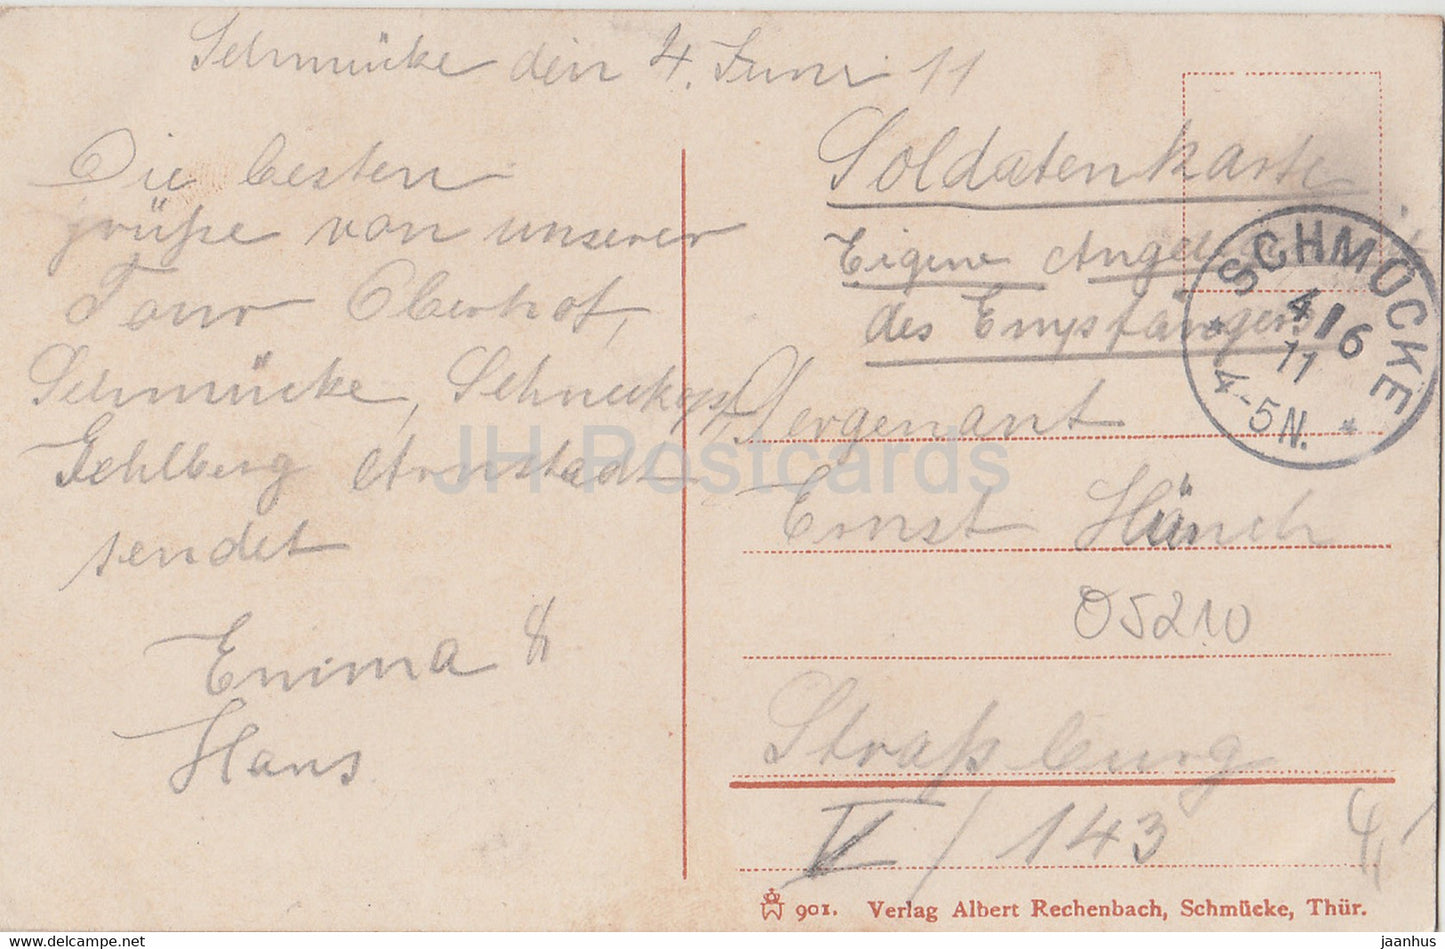 Schmücke den 4. Juni 11
Die besten
grüße von unserer
Tour Oberhof,
Schmücke, Schneekopf,
Gehlberg Arnstadt
sendet
Emma &
Hans
Soldatenkarte
Eigene Angelegenheit
des Empfängers
Sergenant
Ernst Hänch
05210
Straßburg
V/143
SCHMÜCKE
4/6
11
4-5N.
JH Postcards
901. Verlag Albert Rechenbach, Schmücke, Thür.
jaanhus / delcampe.net